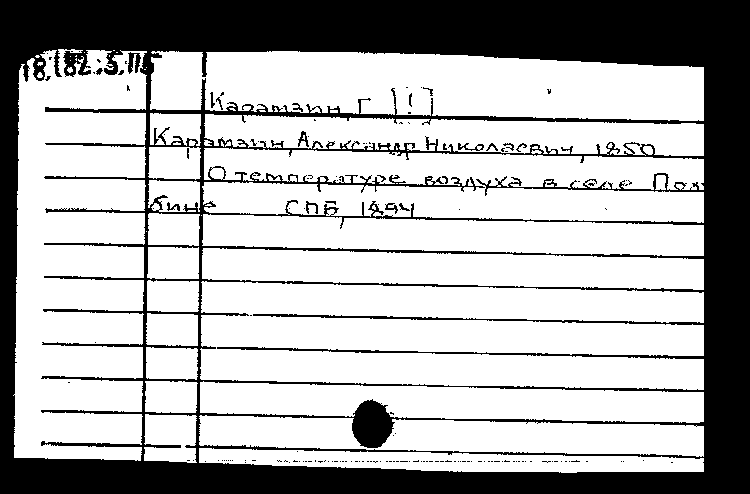 18.182:5.115
Карамзин, Г [!]
Карамзин, Александр Николаевич, 1850
О температуре воздуха в селе Пол
бине СПБ, 1894